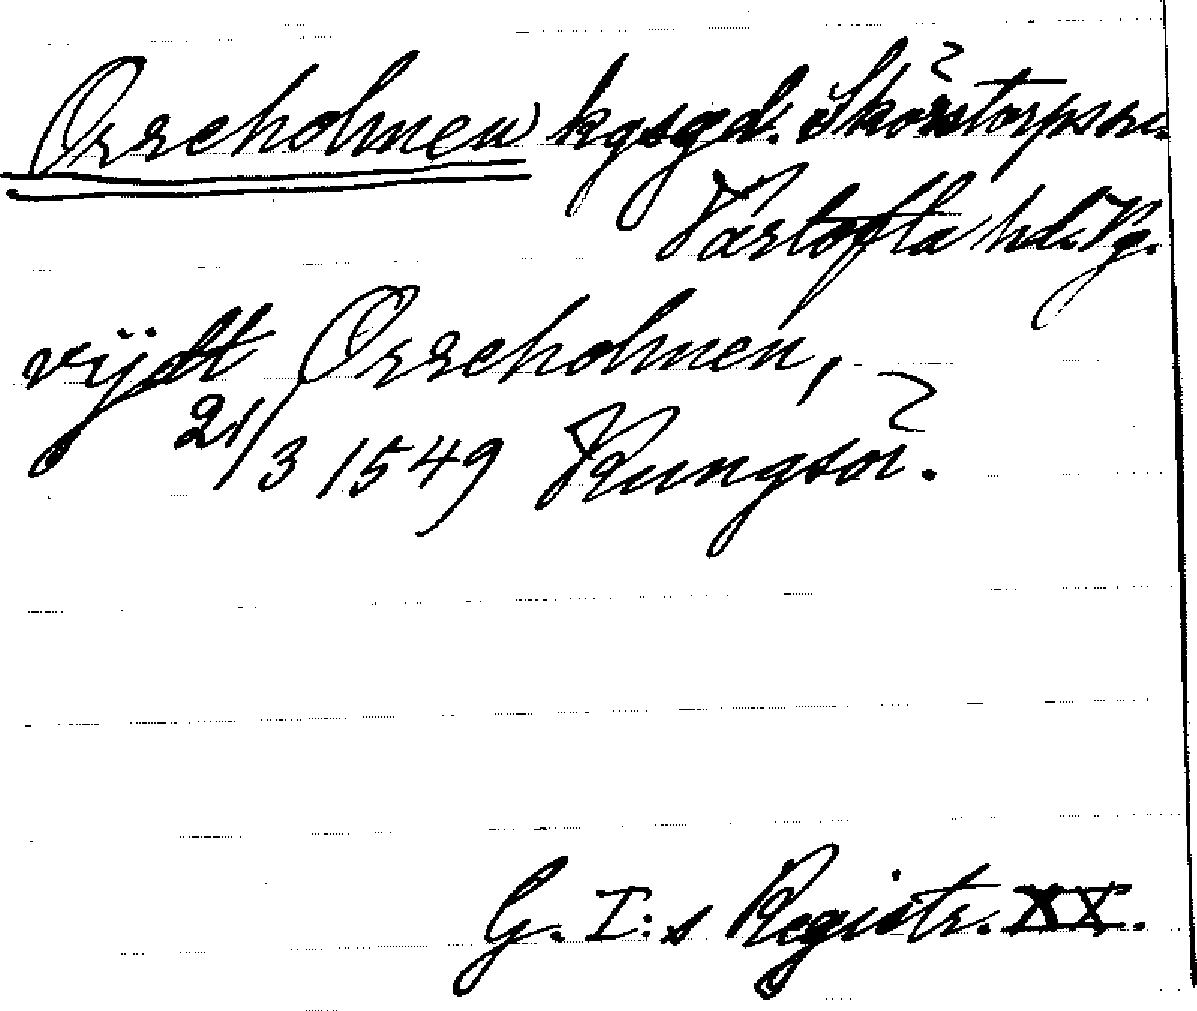 Orreholmen kgsgd. Skörstorps sn.
Vartofta hd. Vg.
vijdt Orreholmen,
21/3 1549 Kungsör.
G. I:s Registr. XX.